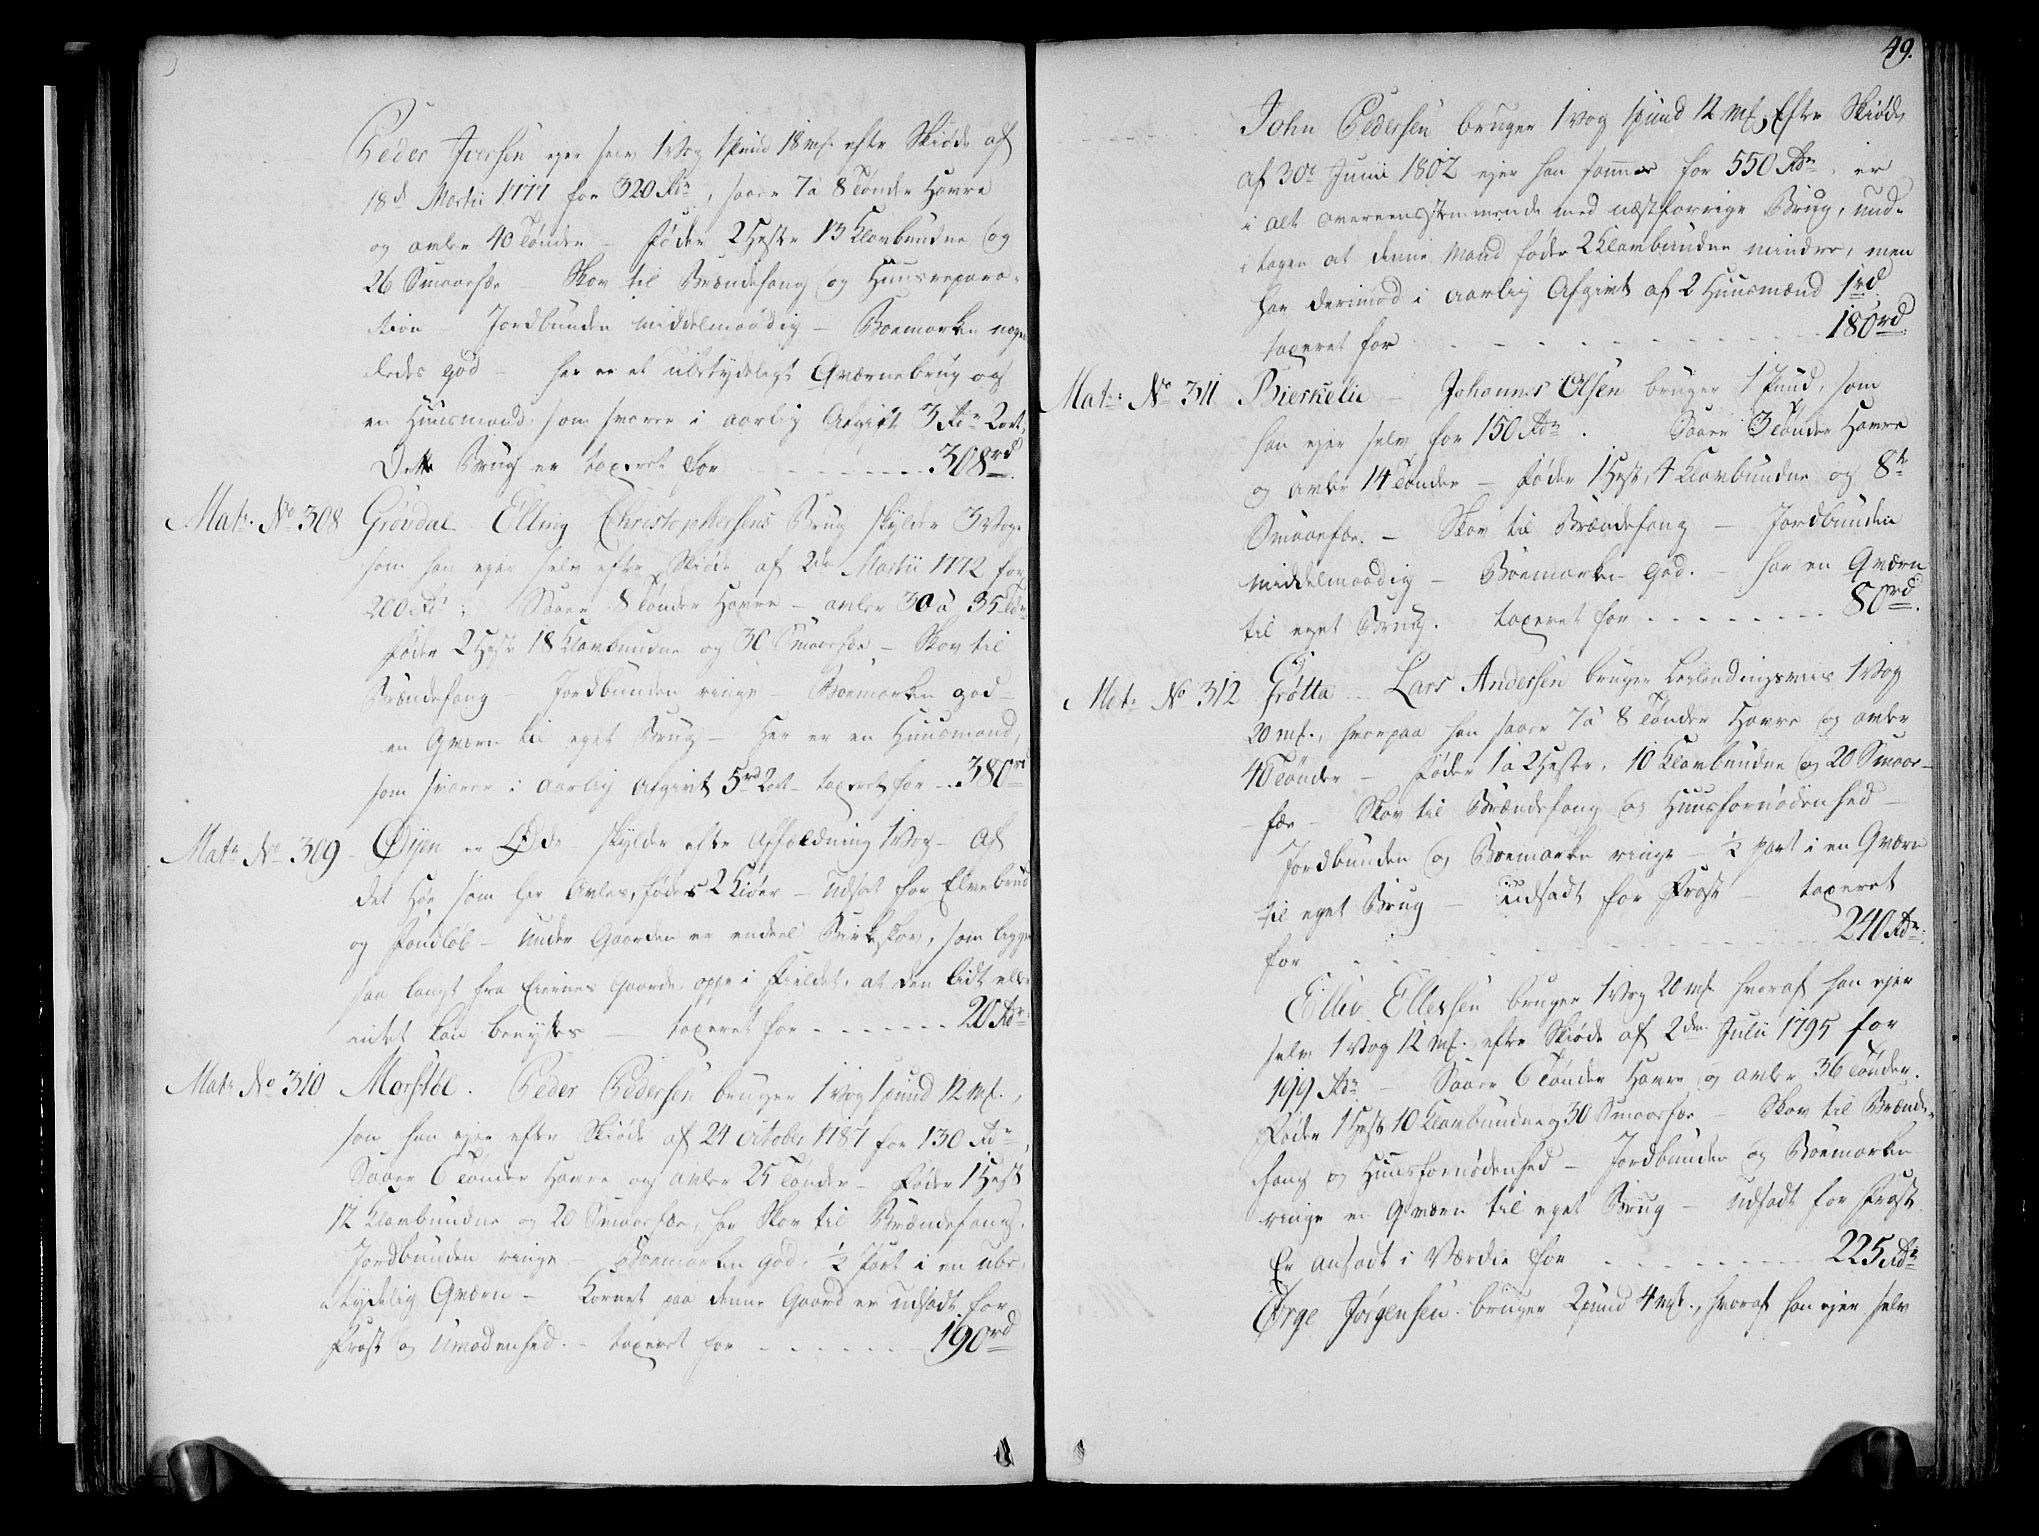 Peder Iversen ejer selv 1 Vog 1 pund 18 mk. efter Skiøde af
18de Martii 1777 for 320 Rdr, saaer 7 a 8 Tønder Havre
og avler 40 Tønder – føder 2 Heste 13 Klovbundne og
26 Smaafæe – Skov til Brændefang og Huusrepara-
tion – Jordbunden middelmaadig – Bøemarken nogen-
ledes god – her er et ubetydeligt Qværnebrug og
en Huusmand, som svarer i aarlig Afgivt 3 Rdr 2 ort.
Dette Brug er taxeret for - - - - - - - 308 rd.
Matr. No 308 Grøvdal Elling Christophersens Brug skylder 3 Vog
som han ejer selv efter Skiøde af 2den Martii 1772 for
200 Rdr; Saaer 8 Tønder Havre – avler 30 a 35 Tdr
føder 2 Heste 18 Klovbundne og 30 Smaafæe – Skov til
Brændefang – Jordbunden ringe – Bøemarken god –
en Qværn til eget Brug – Her er en Huusmand,
som svarer i aarlig Afgivt 5 rd 2 ort – taxeret for - - 380 rd
Matr No 309 – Øyen er Øde – skylder efter Affældning 1 Vog – Af
det Høe som her Avles, fødes 2 Kiøer – Udsat for Elvebrud
og Sandløb – Under Gaarden er endeel Birkskov, som ligger
saa langt fra Eiernes Gaarde oppe i Fieldet, at den lidt eller
intet kan benyttes – taxeret for - - - - - - - 20 Rdr
Matr No 310 Morstøl. Peder Pedersen bruger 1 Vog 1 pund 12 mk.,
som han ejer efter Skiøde af 24 October 1787 for 130 Rdr,
Saaer 6 Tønder Havre og avler 25 Tønder – føder 1 Hest
12 Klovbundne og 20 Smaafæe, har Skov til Brændefang,
Jordbunden ringe – Bøemarken god, ½ Part i en ube-
tydelig Qværn – Kornet paa denne Gaard er udsadt for
Frost og Umodenhed. – taxeret for - - - - - - - 190 rd
49.
John Pedersen bruger 1 Vog 1 pund 12 mk; Efter Skiøde
af 30te Junii 1802 ejer han samme for 550 Rdr, er
i alt overeensstemmende med næstforrige Brug, und-
tagen at denne Mand føder 2 Klovbundne mindre, men
har derimod i aarlig Afgivt af 2 Huusmænd 1 rd
taxeret for - - - - - - - - - 180 rd.
Matr: No 311 Bierkelie – Johannes Olsen bruger 1 Pund, som
han ejer selv for 150 Rdr. Saaer 3 Tønder Havre
og avler 14 Tønder – føder 1 Hest, 4 Klovbundne og 8te
Smaafæe. – Skov til Brændefang – Jordbunden
middelmaadig – Bøemarken god. – har en Qværn
til eget Brug. taxeret for - - - - - - - - 80 rd.
Matr No 312 Grøtta – Lars Andersen bruger Leylendingsviis 1 Vog
20 mk., hvorpaa han saaer 7 a 8 Tønder Havre og avler
40 Tønder – føder 1 a 2 Heste, 10 Klovbundne og 20 Smaae-
fæe – Skov til Brændefang og Huusfornødenhed –
Jordbunden og Bøemarken ringe – ½ part i en Qværn
til eget Brug – udsadt for Frost – taxeret
for - - - - - - - - - 240 Rdr.
Ellev Ellefsen bruger 1 Vog 20 mk hvoraf han ejer
selv 1 Vog 12 mk. efter Skiøde af 2den Julii 1795 for
199 Rdr – Saaer 6 Tønder Havre og avler 36 Tønder.
føder 1 Hest 10 Klovbundne og 30 Smaafæe – Skov til Brænde-
fang og Huusfornødenhed – Jordbunden og Bøemarken
ringe en Qværn til eget Brug – udsadt for Frost
Er ansadt i Værdie for - - - - - - - 225 Rdr
Ørge Jørgensen bruger 2 pund 4 mk., hvoraf han ejer selv